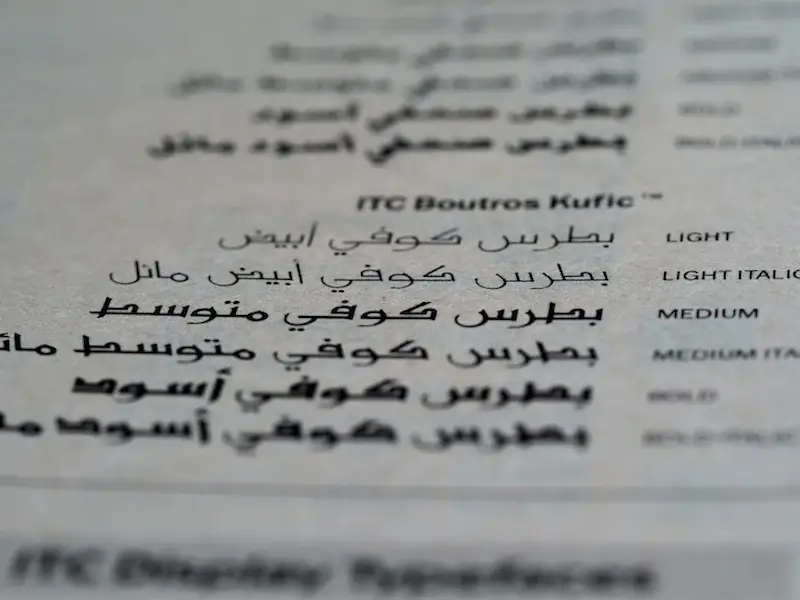 بطرس صحفي أسود BOLD
بطرس صحفي أسود مائل BOLD ITALIC
ITC Boutros Kufic™
بطرس كوفي أبيض LIGHT
بطرس كوفي أبيض مائل LIGHT ITALIC
بطرس كوفي متوسط MEDIUM
بطرس كوفي متوسط مائ MEDIUM ITA
بطرس كوفي أسود BOLD
بطرس كوفي أسود ما BOLD ITALIC
ITC Display Typefaces